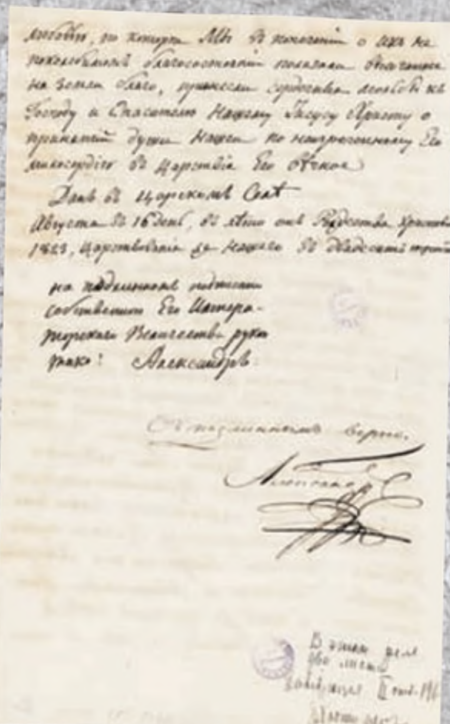 любовію, по которой Мы въ попеченіи о ихъ не
поколебимомъ благосостояніи полагали
на земли благо, принесли сердечныя мольбы къ
Господу и Спасителю Нашему Іисусу Христу о
принятіи души Нашей по неизреченному Его
милосердію въ Царствіе Его вѣчное
Данъ въ Царскомъ Селѣ
Августа въ 16 день, въ лѣто отъ Рождества Христова
1823, Царствованія же Нашего въ двадесять третіе
на подлинномъ подписано
собственною Его Импера-
торскаго Величества рукою
тако: Александръ.
Съ подлиннымъ верно.
Александръ
В этом деле
два листа